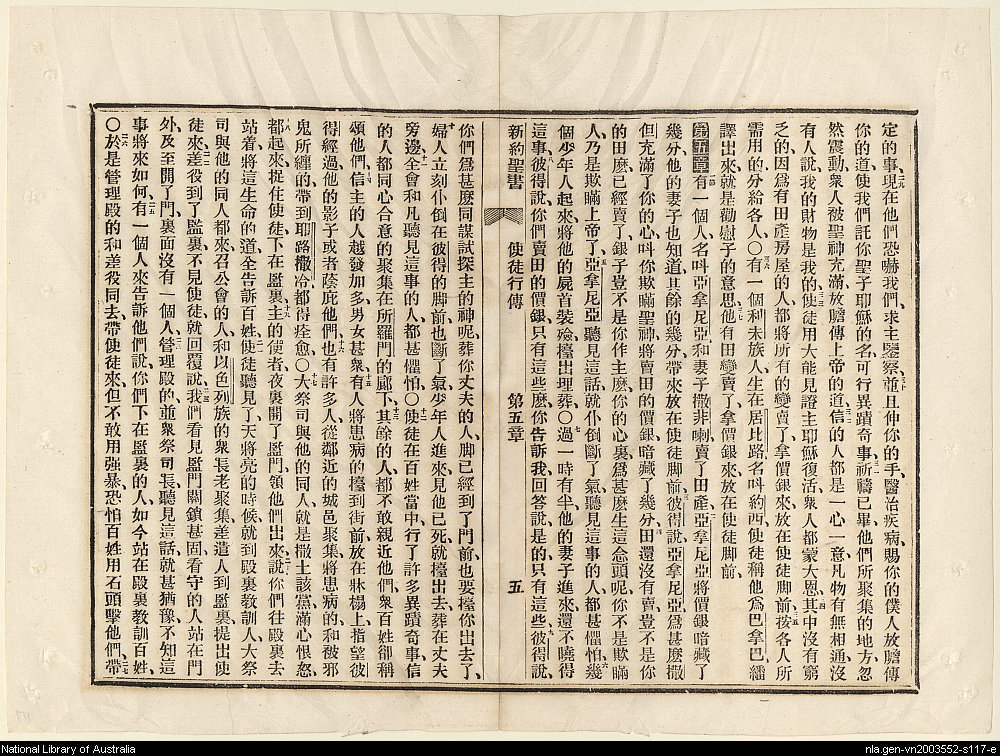 定的事、現在他們恐嚇我們、求主鑒察、並且伸你的手、醫治疾病、賜你的僕人放膽傳
你的道、使我們託你聖子耶穌的名、可行異蹟奇事、祈禱已畢、他們所聚集的地方忽
然震動、衆人被聖神充滿、放膽傳上帝的道、信的人都是一心一意、凡物有無相通、沒
有人說、我的財物是我的、使徒用大能見證主耶穌復活、衆人都蒙大恩、其中沒有窮
乏的、因爲有田產房屋的人、都將所有的變賣了、拿價銀來、放在使徒脚前、按各人所
需用的分給各人、〇有一個利未族人、生在居比路、名呌約西、使徒稱他爲巴拿巴、繙
譯出來就是勸慰子的意思、他有田變賣了、拿價銀來、放在使徒脚前、
第五章有一個人、名呌亞拿尼亞、和妻子撒非喇、賣了田產、亞拿尼亞將價銀暗藏了
幾分、他的妻子也知道、其餘的幾分帶來放在使徒脚前、彼得說、亞拿尼亞、爲甚麽撒
但充滿了你的心、呌你欺瞞聖神、將賣田的價銀暗藏了幾分、田還沒有賣、豈不是你
的田麽、已經賣了、銀子豈不是你作主麽、你的心裏爲甚麽生這念頭呢、你不是欺瞞
人、乃是欺瞞上帝了、亞拿尼亞聽見這話、就仆倒斷了氣、聽見這事的人都甚懼怕、幾
個少年人起來、將他的屍首裝殮、擡出埋葬、〇過一時有半、他的妻子進來、還不曉得
這事、彼得說、你們賣田的價銀、只有這些麽、你告訴我、回答說、是的、只有這些、彼得說、
新約聖書 使徒行傳 第五章 五
你們爲甚麽同謀試探主的神呢、葬你丈夫的人、脚已經到了門前、也要擡你出去了、
婦人立刻仆倒在彼得的脚前、也斷了氣、少年人進來、見他已死、就擡出去、葬在丈夫
旁邊、全會和凡聽見這事的人、都甚懼怕、〇使徒在百姓當中、行了許多異蹟奇事、信
的人都同心合意的聚集在所羅門的廊下、其餘的人、都不敢親近他們、衆百姓卻稱
頌他們、信主的人越發加多、男女甚衆、有人將患病的擡到街前、放在牀榻上、指望彼
得經過、他的影子或者蔭庇他們、也有許多人、從鄰近的城邑聚集、將患病的、和被邪
鬼所纏的、帶到耶路撒冷、都得痊愈、〇大祭司與他的同人、就是撒土該黨、滿心恨怒、
都起來、捉住使徒、下在監裏、主的使者夜裏開了監門、領他們出來、說、你們往殿裏去
站着、將這生命的道、全告訴百姓、使徒聽見了、天將亮的時候、就到殿裏教訓人、大祭
司與他的同人都來、召公會的人、和以色列族的衆長老聚集、差遣人到監裏提出使
徒來、差役到了監裏、不見使徒、就回覆說、我們看見監門關鎖甚固、看守的人站在門
外、及至開了門、裏面沒有一個人、管理殿的、並衆祭司長聽見這話、就甚猶豫、不知這
事將來如何、有一個人來告訴他們說、你們下在監裏的人、如今站在殿裏教訓百姓、
〇於是管理殿的和差役同去、帶使徒來、但不敢用强暴、恐怕百姓用石頭擊他們、帶
National Library of Australia
nla.gen-vn2003552-s117-e